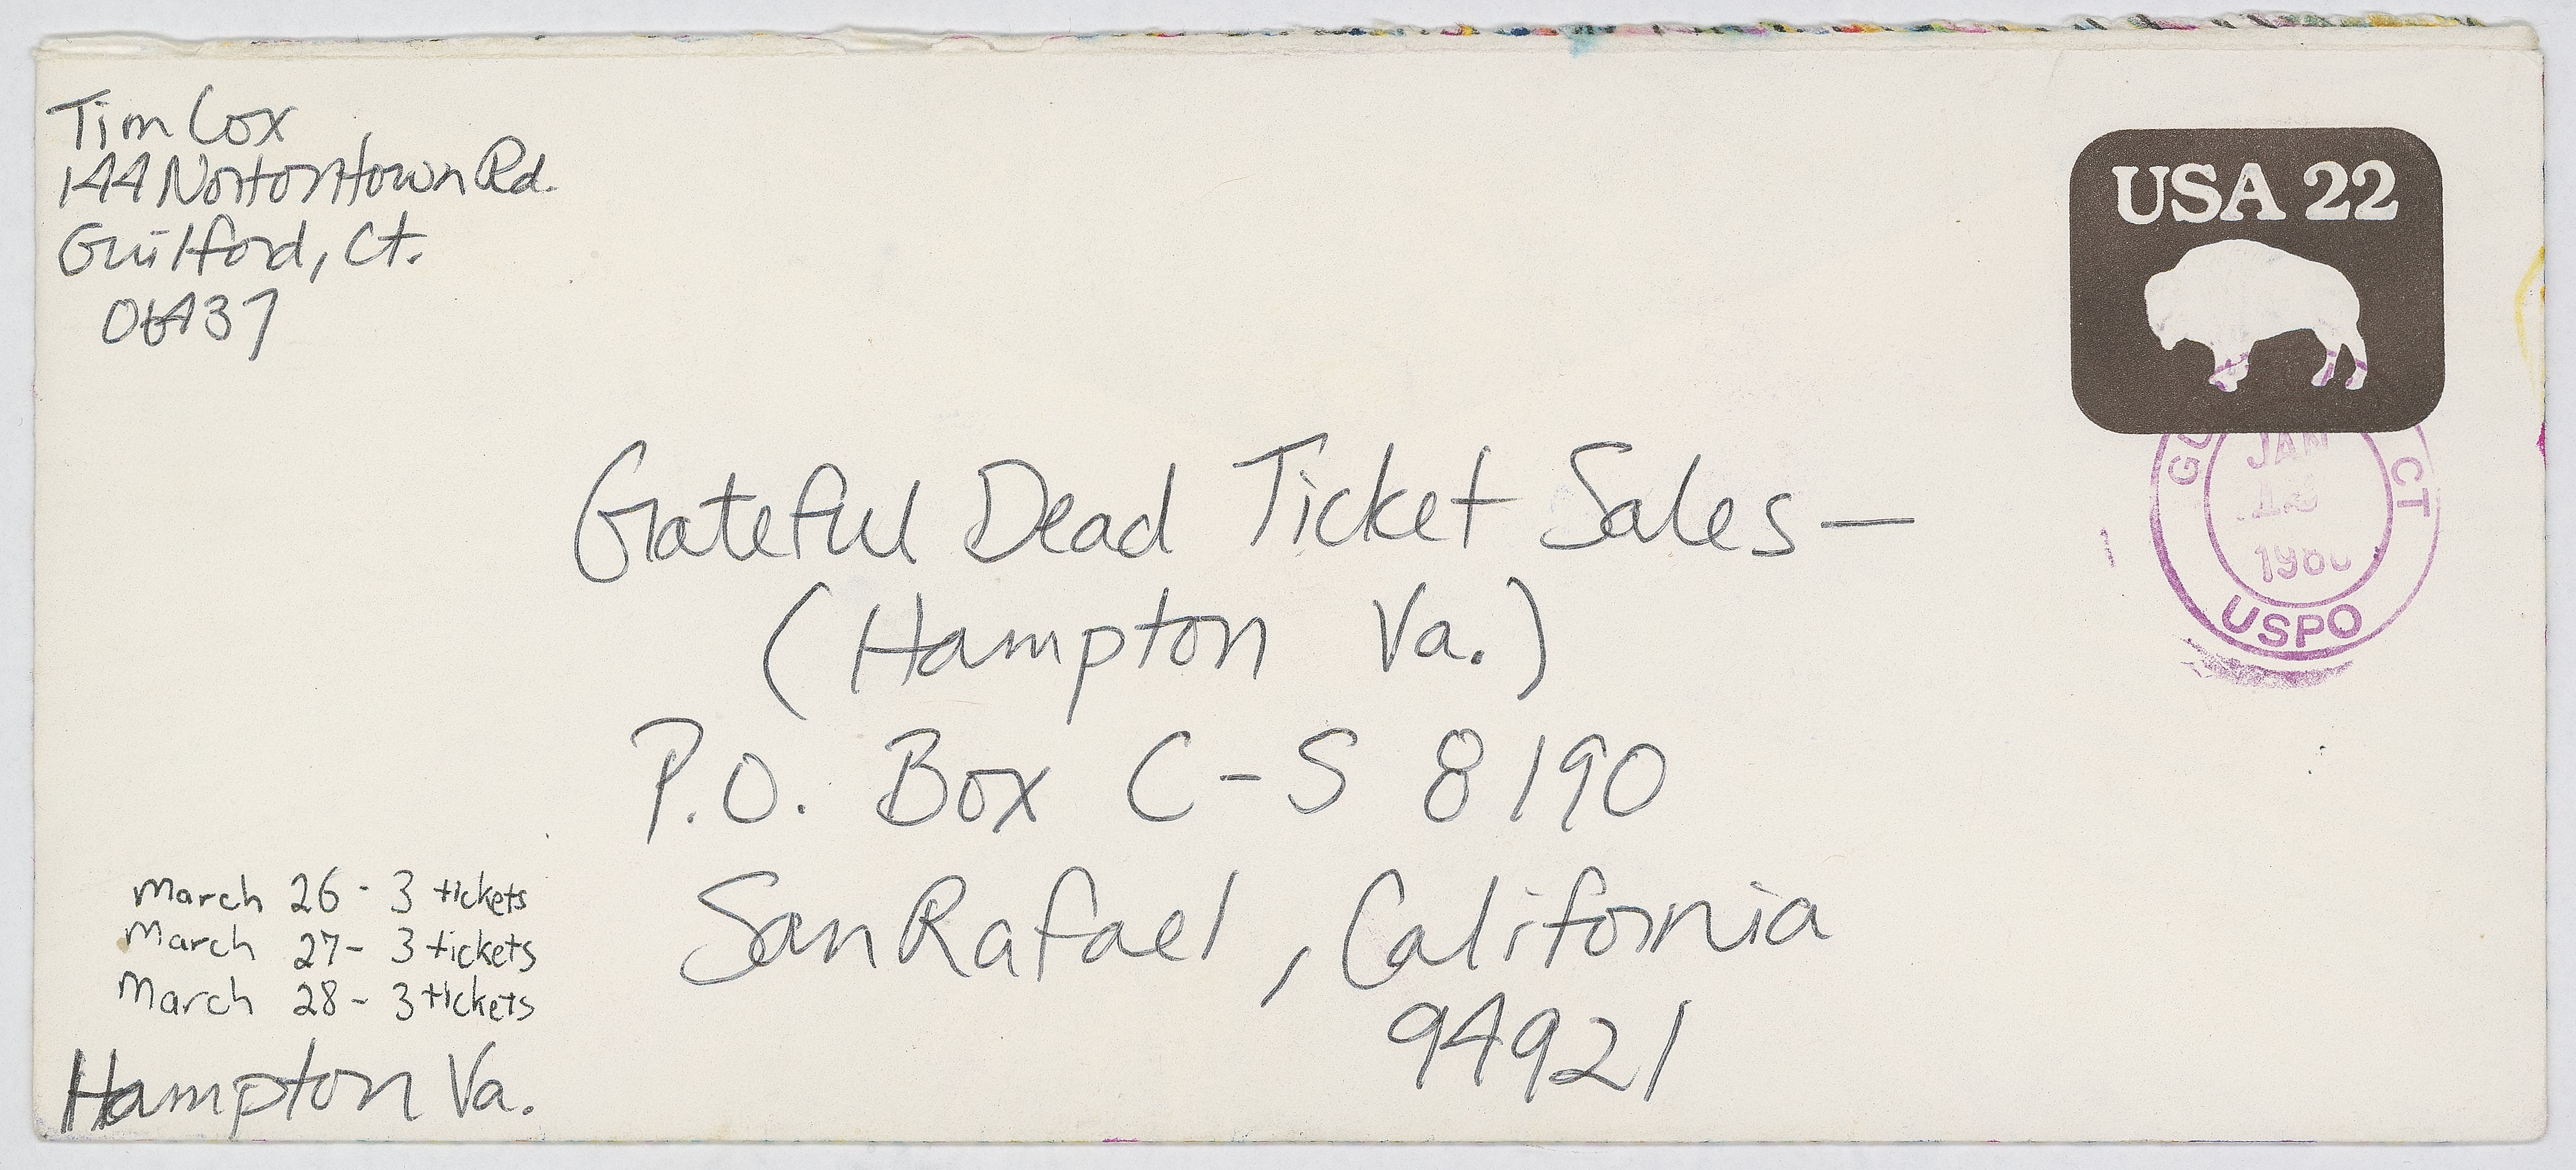 Tim Cox
144 Nortontown Rd.
Guilford, Ct.
06437
USA 22
JAN
CT
USPO
Grateful Dead Ticket Sales—
(Hampton Va.)
P.O. Box C-S 8190
San Rafael, California
94921
March 26 - 3 tickets
March 27 - 3 tickets
March 28 - 3 tickets
Hampton Va.